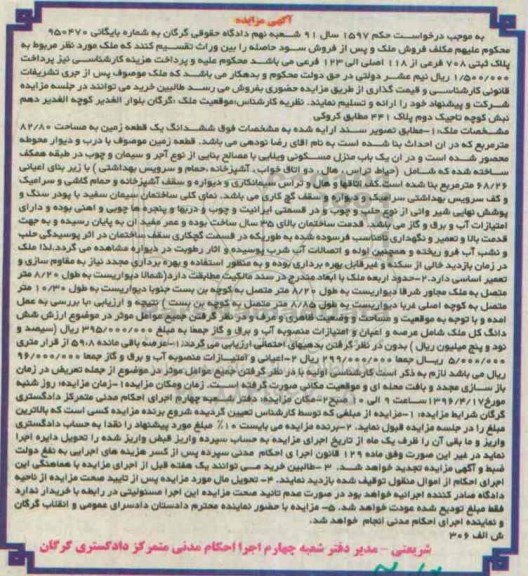 آگهی مزایده
به موجب درخواست حکم ۱۵۹۷ سال ۹۱ شعبه نهم دادگاه حقوقی گرگان به شماره بایگانی ۹۵۰۴۷۰
محکوم علیهم مکلف فروش ملک و پس از فروش سود حاصله را بین وراث تقسیم کنند که ملک مورد نظر مربوط به
پلاک ثبتی ۷۰۸ فرعی از ۱۱۸ اصلی الی ۱۲۳ فرعی می باشد محکوم علیه و پرداخت هزینه کارشناسی نیز پرداخت
۱/۵۰۰/۰۰۰ ریال نیم عشر دولتی در حق دولت محکوم و بدهکار می باشد که ملک موصوف پس از جری تشریفات
قانونی کارشناسی و قیمت گذاری از طریق مزایده حضوری بفروش می رسد طالبین خرید می توانند در جلسه مزایده
شرکت و پیشنهاد خود را ارائه و تسلیم نمایند. نظریه کارشناس:موقعیت ملک :گرگان بلوار الغدیر کوچه الغدیر دهم
نبش کوچه تاجیک دوم پلاک ۴۴۱ مطابق کروکی
مشخصات ملک:۱-مطابق تصویر سند ارایه شده به مشخصات فوق ششدانگ یک قطعه زمین به مساحت ۸۲/۸۰
مترمربع که در ان احداث بنا شده است به نام اقای رضا نودهی می باشد. قطعه زمین موصوف با درب و دیوار محوطه
محصور شده است و در ان یک باب منزل مسکونی ویلایی با مصالح بنایی از نوع آجر و سیمان و چوب در طبقه همکف
ساخته شده که شامل (حیاط تراس، هال، دو اتاق خواب، آشپزخانه ،حمام و سرویس بهداشتی) با زیر بنای اعیانی
۶۸/۲۶ مترمربع بنا شده است.کف اتاقها و هال و تراس سیمانکاری و دیواره و سقف آشپزخانه و حمام کاشی و سرامیک
و کف سرویس بهداشتی سرامیک و دیواره و سقف گچ کاری می باشد. نمای کلی ساختمان سیمان سفید با پودر سنگ و
پوشش نهایی شیر وانی از نوع حلب و چوب و در قسمتی ایرانیت و چوب و دربها و پنجره ها چوبی و اهنی بوده و دارای
امتیازات آب و برق و گاز می باشد. قدمت ساختمان بالای ۳۵ سال ساخت بوده و عمر مفید ان به پایان رسیده و به جهت
قدمت بالا و تعمیر و نگهداری نامناسب فرسوده شده به طوریکه در قسمت گچکاری سقف ساختمان در اثر پوسیدگی حلب
و نشت آب فرو ریخته و همچنین لوله و اتصالات آب شرب پوسیده و اثار رطوبت در دیواره مشاهده می گردد.لذا ملک
در زمان بازدید خالی از سکنه و غیرقابل بهره برداری بوده و به منظور استفاده و بهره برداری مجدد نیاز به مقاوم سازی و
تعمیر اساسی دارد.۲-حدود اربعه ملک با ابعاد مندرج در سند مالکیت مطابقت دارد(شمالا دیواریست به طول ۸/۲۰ متر
متصل به ملک مجاور شرقا دیواریست به طول ۸/۲۰ متر متصل به کوچه بن بست جنوبا دیواریست به طول ۱۰/۳۰ متر
متصل به کوچه اصلی غربا دیواریست به طول ۸/۸۵ متر متصل به کوچه بن بست ) نتیجه و ارزیابی :با بررسی به عمل
امده و با توجه به موقعیت و مساحت و وضعیت ظاهری و عرف و در نظر گرفتن جمیع عوامل موثر در موضوع ارزش شش
دانگ کل ملک شامل عرصه و اعیان و امتیازات منصوبه آب و برق و گاز جمعا به مبلغ ۳۹۵/۰۰۰/۰۰۰ ریال (سیصد و
نود و پنج میلیون ریال ) بدون در نظر گرفتن بدهیهای احتمالی ارزیابی می گردد:۱-عرصه باقی مانده ۵۹.۸ از قرار متری
۵/۰۰۰/۰۰۰ ریال جمعا ۲۹۹/۰۰۰/۰۰۰ ریال ۲-اعیانی و امتیازات منصوبه آب و برق و گاز جمعا ۹۶/۰۰۰/۰۰۰
ریال می باشد لازم به ذکر است کارشناسی اولیه با در نظر گرفتن جمیع عوامل موثر در موضوع از جمله تعریض در زمان
باز سازی مجدد و بافت محله ای و موقعیت مکانی صورت گرفته است. زمان ومکان مزایده:۱-زمان مزایده: روز شنبه
مورخ۱۳۹۶/۴/۱۷ساعت ۹ الی ۱۰ صبح۲-مکان مزایده: دفتر شعبه چهارم اجرای احکام مدنی متمرکز دادگستری
گرگان شرایط مزایده: ۱-مزایده از مبلغی که توسط کارشناس تعیین گردیده شروع برنده مزایده کسی است که بالاترین
مبلغ را در جلسه مزایده قبول نماید. ۲-برنده مزایده می بایست ۱۰٪ مبلغ مورد پیشنهاد را نقدا به حساب دادگستری
واریز و ما بقی آن را ظرف یک ماه از تاریخ اجرای مزایده به حساب سپرده واریز قبض واریز شده را تحویل دایره اجرا
نماید در غیر این صورت وفق ماده ۱۲۹ قانون اجرا ی احکام مدنی سپرده پس از کسر هزینه های اجرایی به نفع دولت
ضبط و آگهی مزایده تجدید خواهد شد. ۳ -طالبین خرید می توانند یک هفته قبل از اجرای مزایده با هماهنگی این
اجرای احکام از اموال منقول توقیف شده بازدید نمایند. ۴- تحویل مال مورد مزایده پس از تایید صحت مزایده از ناحیه
دادگاه صادر کننده اجرائیه خواهد بود در صورت عدم تائید صحت مزایده این اجرا مسئولیتی در رابطه با خریدار ندارد
فقط مبلغ تودیع شده عودت خواهد شد. ۵- مزایده با حضور نماینده محترم دادستان دادسرای عمومی و انقلاب گرگان
و نماینده اجرای احکام مدنی انجام خواهد شد.
ش الف ۳۰۶
شریعتی - مدیر دفتر شعبه چهارم اجرا احکام مدنی متمرکز دادگستری گرگان